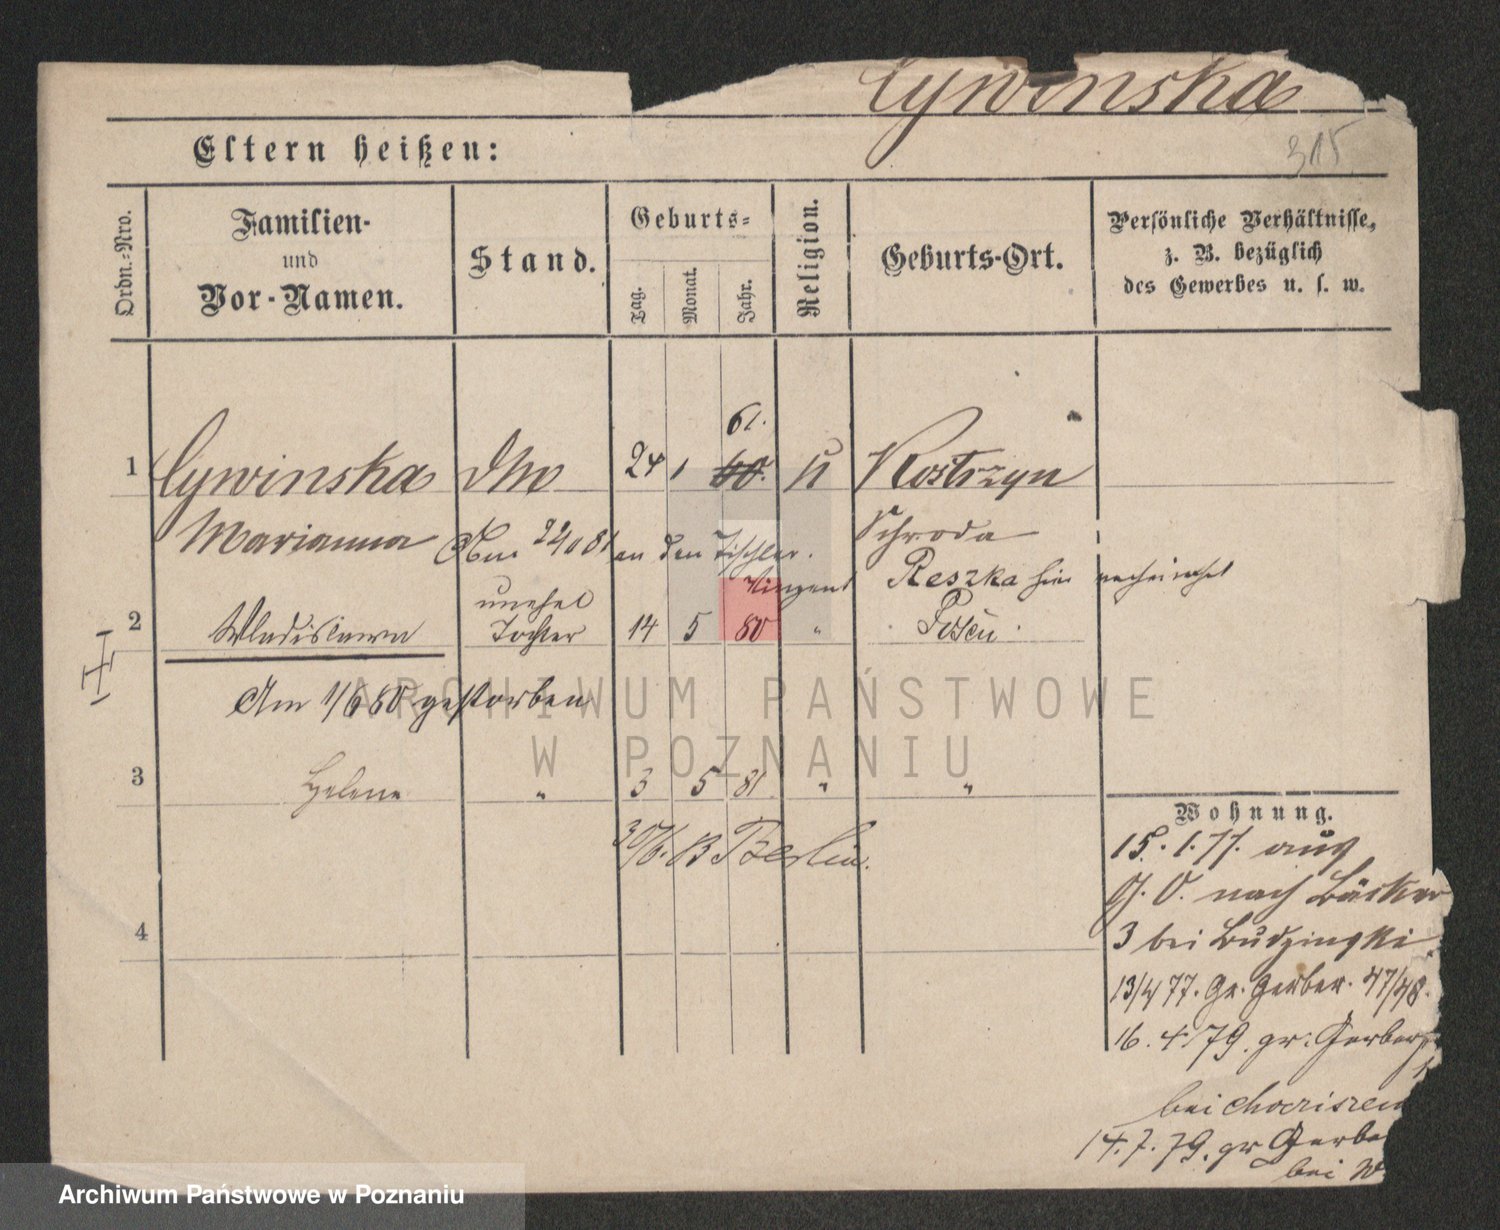 Cywinska
315
Eltern heißen:
Ordn.-Nro.
Familien-
und
Vor-Namen.
Stand.
Geburts-
Tag.
Monat.
Jahr.
Religion.
Geburts-Ort.
Persönliche Verhältnisse,
z. B. bezüglich
des Gewerbes u. s. w.
61.
1 Cywinska 24 1 60. Kostrzyn
Marianna Schroda
Am 22/10 81 an den Tischler.
Vinzent Reszka hier verheirathet
unehel
2 Wladislawa Tochter 14 5 80 " Posen
Am 1/6 80 gestorben
3 Helene " 3 5 81 " "
30/6. B Berlin.
4
Wohnung.
15. 1. 77. aus
G. O. nach Bäcker
3 bei Budzinski
13/4 77. Gr. Gerber. 47/48.
16. 4. 79. gr. Gerber
bei
14. 7. 79. gr Gerbe
bei W
ARCHIWUM PAŃSTWOWE
W POZNANIU
Archiwum Państwowe w Poznaniu